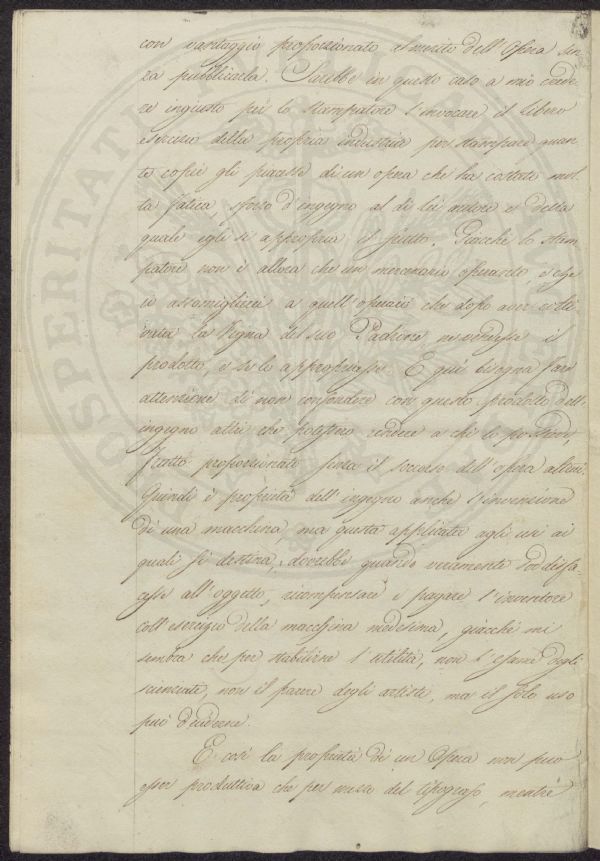 con vantaggio proporzionato al merito dell'Opera sen-
za pubblicarla. Sarebbe in questo caso a mio crede-
re ingiusto per lo stampatore l'invocare il libero
esercizio della propria industria per stampare quan-
te copie gli piacesse di un opera che ha costato mol-
ta fatica, sforzo d'ingegno al di lei autore e della
quale egli si appropria il frutto. Giacchè lo stam-
patore non è allora che un mercenario operaio, e che
io assomiglierei a quell'operaio che dopo aver colti-
vata la Vigna del suo Padrone, ne vendesse il
prodotto, e se lo appropriasse. E qui bisogna fare
attenzione di non confondere con questo prodotto dell'
ingegno altri che possono rendere a chi lo
frutto proporzionato senza il soccorso dell'opera altrui.
Quindi è proprietà dell'ingegno anche l'invenzione
di una macchina ma questa applicata agli usi ai
quali si destina, dovrebbe quando veramente soddisfa-
cesse all'oggetto, ricompensare e pagare l'inventore
coll'esercizio della macchina medesima, giacchè mi
sembra che per stabilirne l'utilità, non l'esame degli
scienziati, non il parere degli artisti, ma il solo uso
può deciderne.
E così la proprietà di un Opera non può
esser produttiva che per mezzo del tipografo, mentre
PROSPERITATI